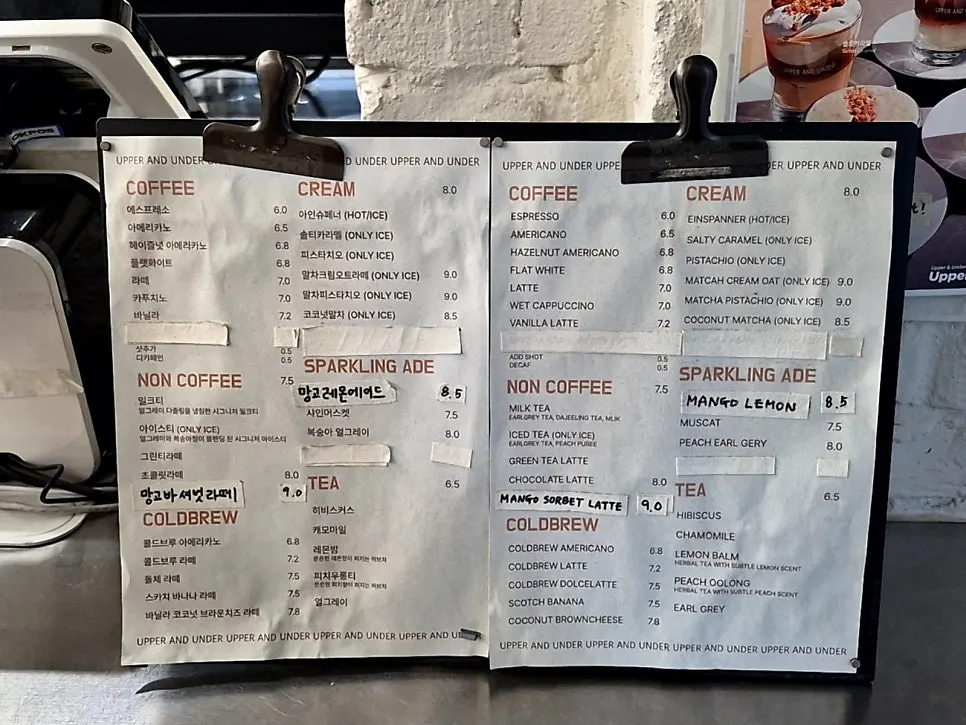 OKPOS
UPPER AND UNDER
D UNDER UPPER AND UNDER
COFFEE
에스프레소 6.0
아메리카노 6.5
헤이즐넛 아메리카노 6.8
플랫화이트 6.8
라떼 7.0
카푸치노 7.0
바닐라 7.2
샷추가 0.5
디카페인 0.5
NON COFFEE 7.5
밀크티
얼그레이 다즐링을 냉침한 시그니처 밀크티
아이스티 (ONLY ICE)
얼그레이와 복숭아청이 블렌딩 된 시그니처 아이스티
그린티라떼
초콜릿라떼 8.0
망고바셔벗라떼 9.0
COLDBREW
콜드브루 아메리카노 6.8
콜드브루 라떼 7.2
돌체 라떼 7.5
스카치 바나나 라떼 7.5
바닐라 코코넛 브라운치즈 라떼 7.8
CREAM 8.0
아인슈페너 (HOT/ICE)
솔티카라멜 (ONLY ICE)
피스타치오 (ONLY ICE)
말차크림오트라떼 (ONLY ICE) 9.0
말차피스타치오 (ONLY ICE) 9.0
코코넛말차 (ONLY ICE) 8.5
SPARKLING ADE
망고레몬에이드 8.5
샤인머스켓 7.5
복숭아 얼그레이 8.0
TEA 6.5
히비스커스
캐모마일
레몬밤
은은한 레몬향이 퍼지는 허브차
피치우롱티
은은한 피치향이 퍼지는 허브차
얼그레이
UPPER AND UNDER UPPER AND UNDER UPPER AND UNDER UPPER AND U
UPPER AND UNDER UPPE
UPPER AND UNDER
COFFEE
ESPRESSO 6.0
AMERICANO 6.5
HAZELNUT AMERICANO 6.8
FLAT WHITE 6.8
LATTE 7.0
WET CAPPUCCINO 7.0
VANILLA LATTE 7.2
ADD SHOT 0.5
DECAF 0.5
NON COFFEE 7.5
MILK TEA
EARLGREY TEA, DAJEELING TEA, MLIK
ICED TEA (ONLY ICE)
EARLGREY TEA, PEACH PUREE
GREEN TEA LATTE
CHOCOLATE LATTE 8.0
MANGO SORBET LATTE 9.0
COLDBREW
COLDBREW AMERICANO 6.8
COLDBREW LATTE 7.2
COLDBREW DOLCELATTE 7.5
SCOTCH BANANA 7.5
COCONUT BROWNCHEESE 7.8
CREAM 8.0
EINSPANNER (HOT/ICE)
SALTY CARAMEL (ONLY ICE)
PISTACHIO (ONLY ICE)
MATCAH CREAM OAT (ONLY ICE) 9.0
MATCHA PISTACHIO (ONLY ICE) 9.0
COCONUT MATCHA (ONLY ICE) 8.5
SPARKLING ADE
MANGO LEMON 8.5
MUSCAT 7.5
PEACH EARL GERY 8.0
TEA 6.5
HIBISCUS
CHAMOMILE
LEMON BALM
HERBAL TEA WITH SUBTLE LEMON SCENT
PEACH OOLONG
HERBAL TEA WITH SUBTLE PEACH SCENT
EARL GREY
UPPER AND UNDER UPPER AND UNDER UPPER AND UNDER UPPER AND UNDER
UPPER AND UNDER
Upper & Under
Uppe